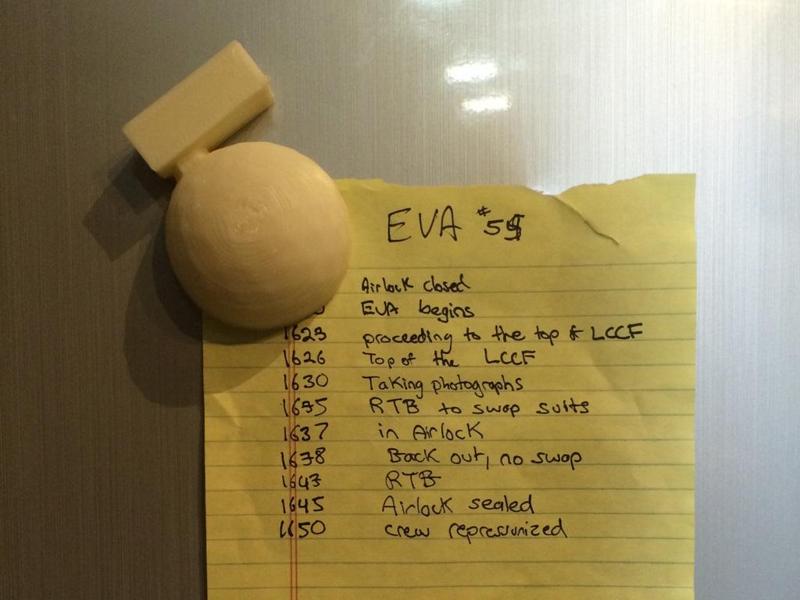 EVA #54
Airlock closed
EVA begins
1623 proceeding to the top of LCCF
1626 Top of the LCCF
1630 Taking photographs
1635 RTB to swap suits
1637 in Airlock
1638 Back out, no swap
1643 RTB
1645 Airlock sealed
1650 crew repressurized